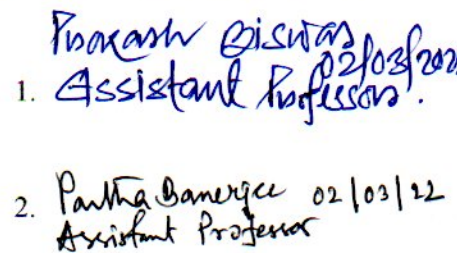 Prakash Biswas
02/03/202
1. Assistant Professor.
2. Partha Banerjee 02/03/22
Assistant Professor